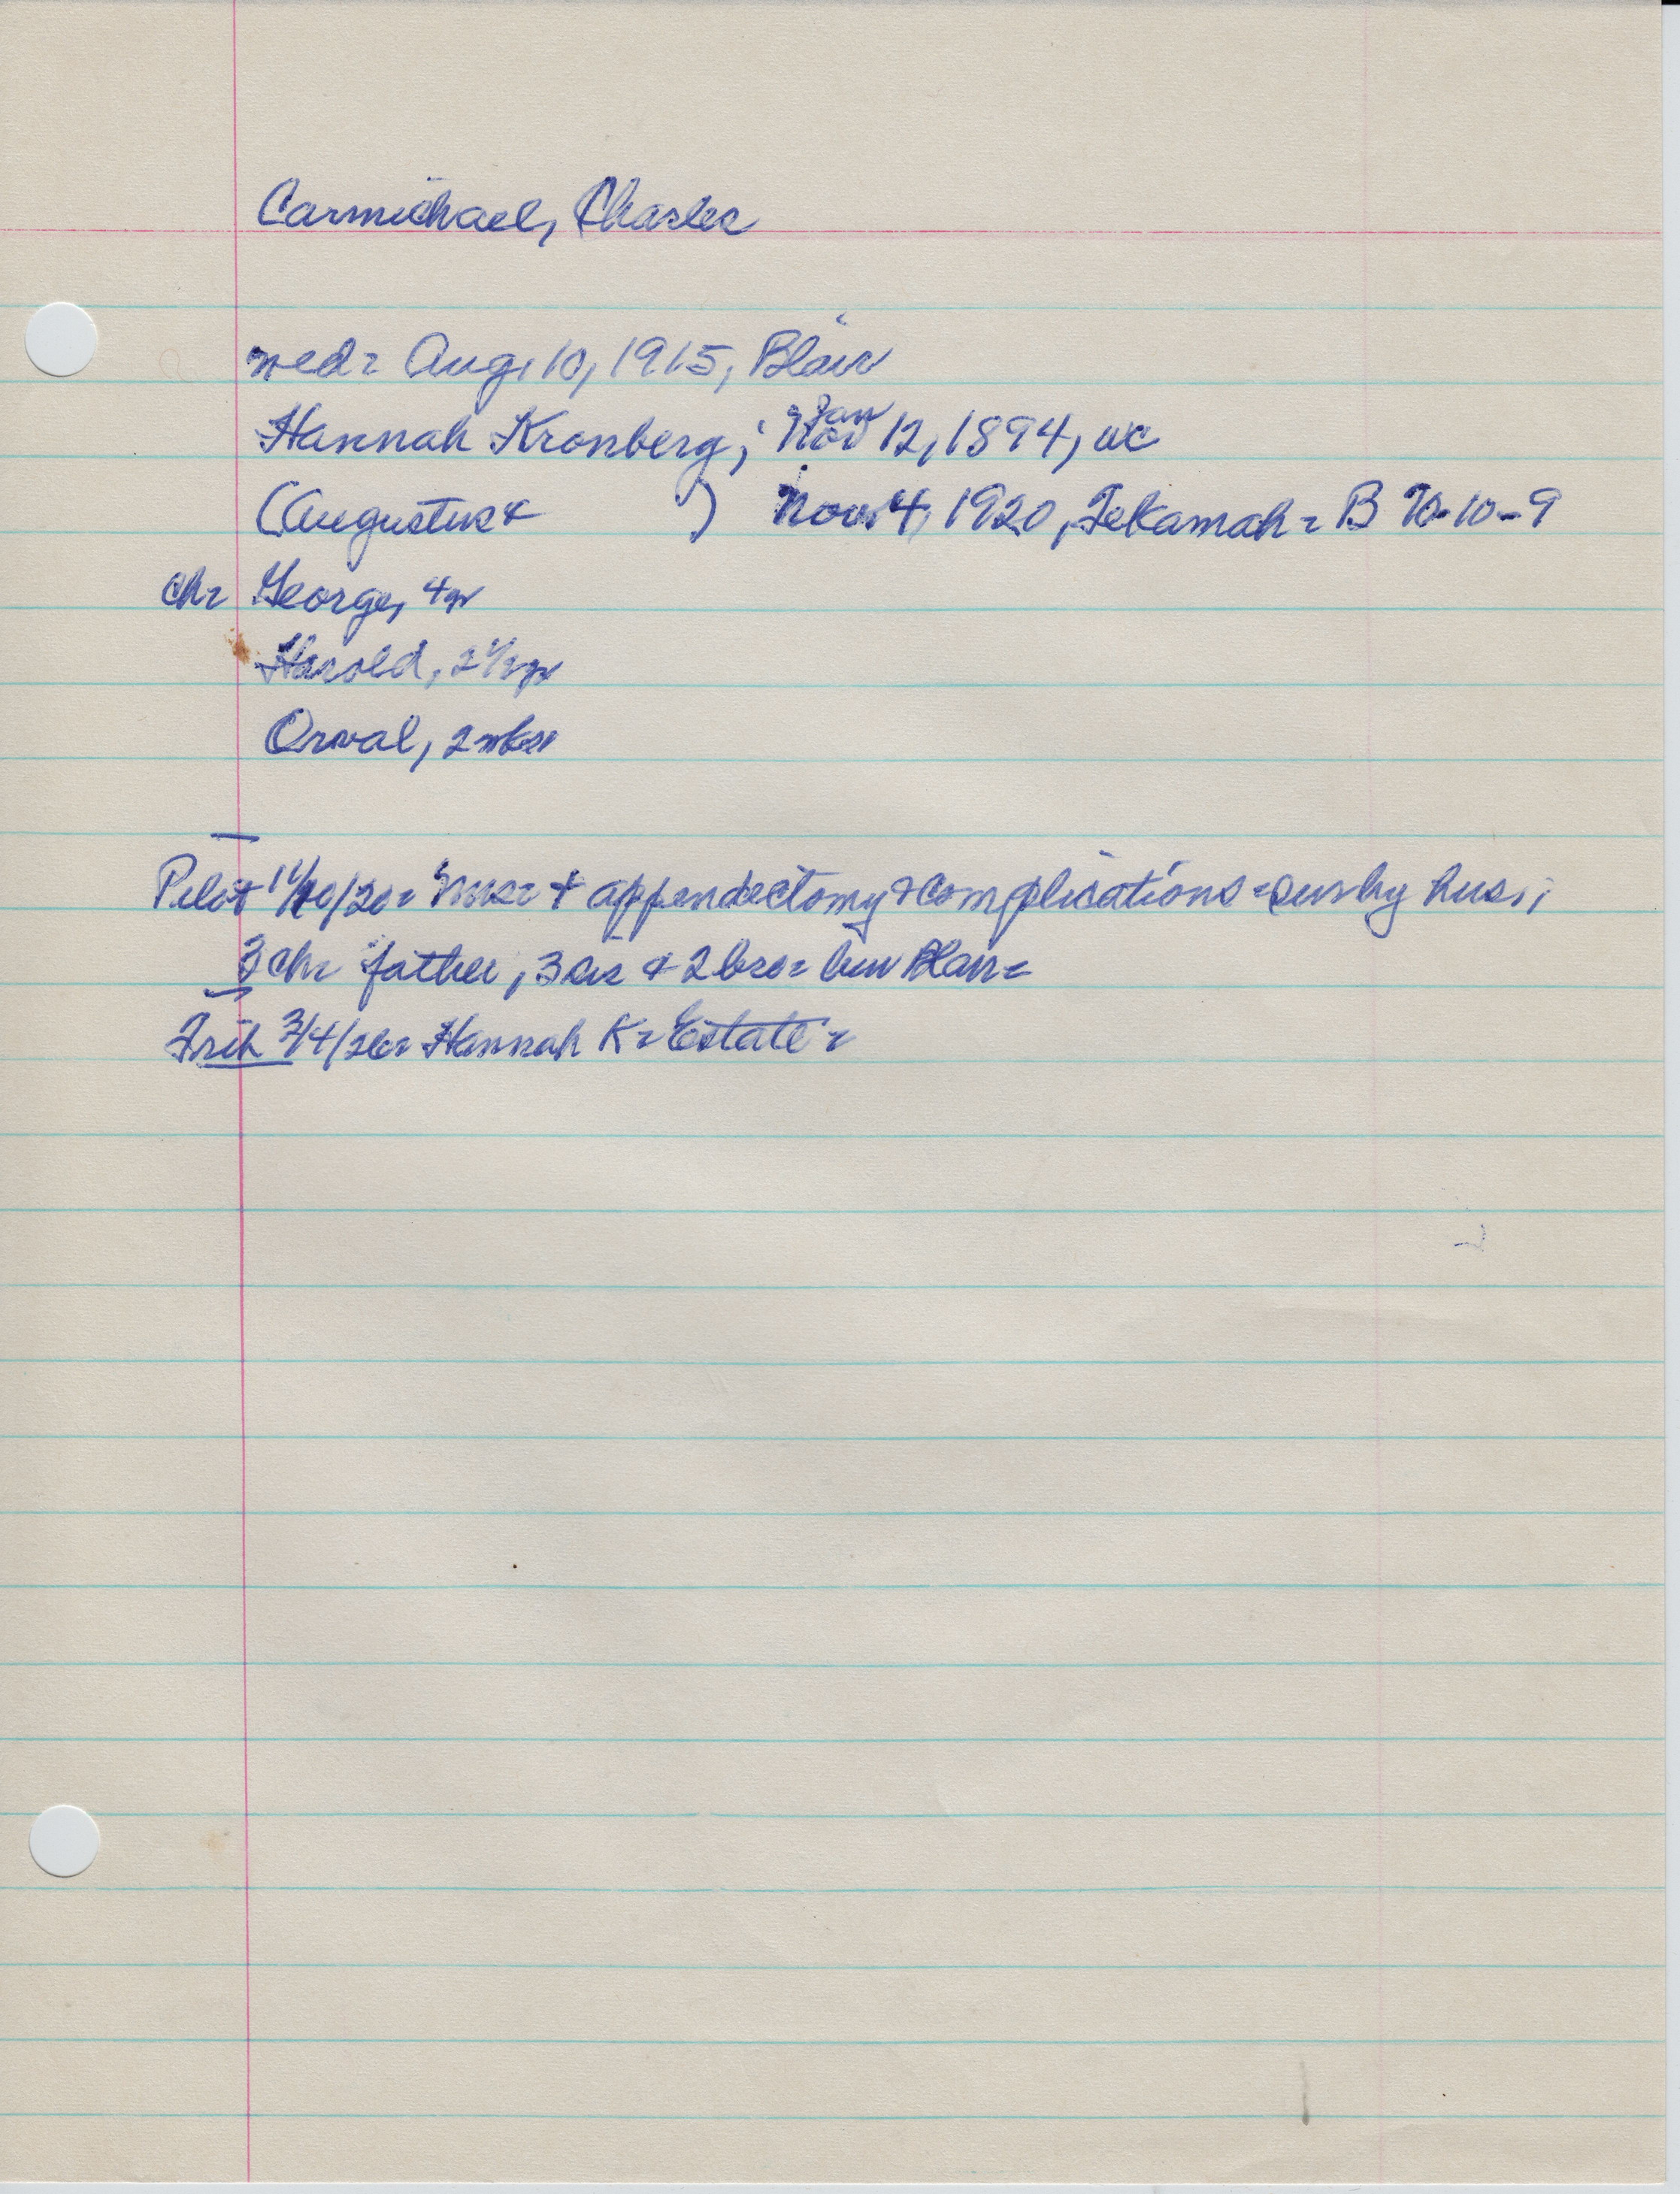 Carmichael, Charles
wed= Aug. 10, 1915, Blair
Hannah Kronberg; Jan 12, 1894, wc
(Augustus & ) Nov. 4, 1920, Tekamah = B 70-10-9
ch= George, 4yr
Harold, 2 1/2 yr
Orval, 2 wks
Pilot 11/10/20= Mrs= + appendectomy & complications = surv by hus.;
3 ch= father, 3 sis & 2 bro= bur Blair=
Trib 3/4/26= Hannah K= Estate=